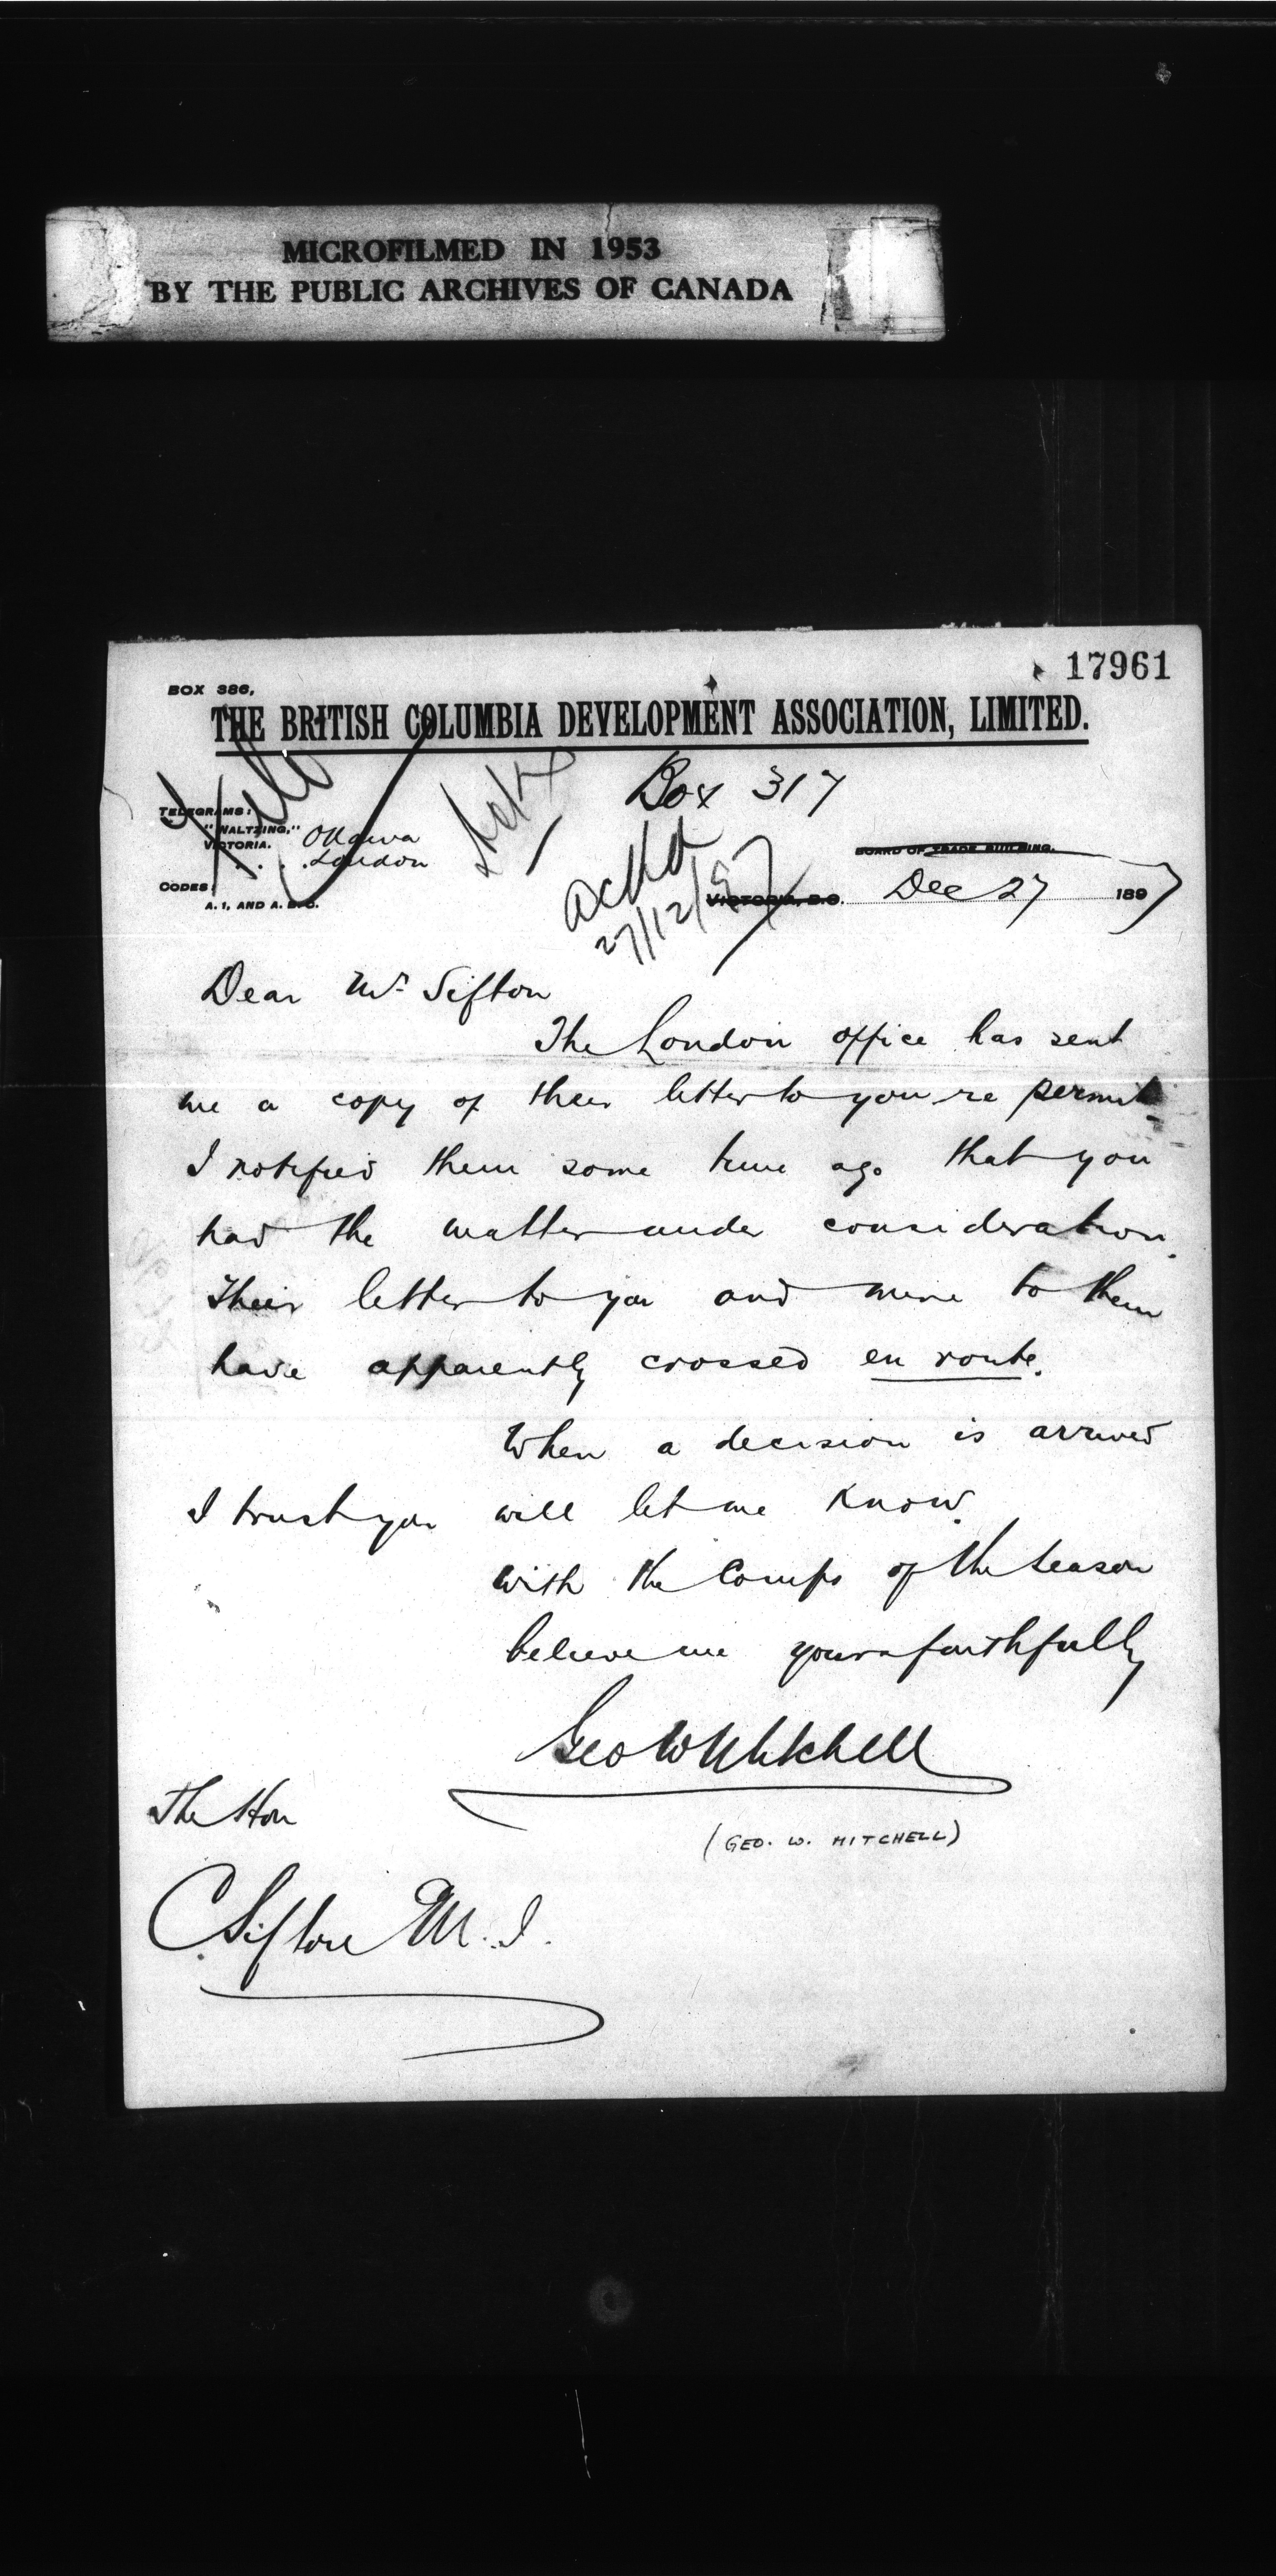 MICROFILMED IN 1953
BY THE PUBLIC ARCHIVES OF CANADA
17961
BOX 386,
THE BRITISH COLUMBIA DEVELOPMENT ASSOCIATION, LIMITED.
Box 317
TELEGRAMS:
"WALTZING,"
VICTORIA.
Ottawa
London
CODES:
A. 1, AND A. B. C.
ackd
27/12/97
BOARD OF TRADE BUILDING.
VICTORIA, B.C. Dec 27 1897
Dear Mr Sifton
The London office has sent
me a copy of their letter to you re permit
I notified them some time ago that you
had the matter under consideration.
Their letter to you and mine to them
have apparently crossed en route.
When a decision is arrived
I trust you will let me know.
With the Comps of the season
believe me yours faithfully
Geo W Mitchell
(GEO. W. MITCHELL)
The Hon
C. Sifton M.I.